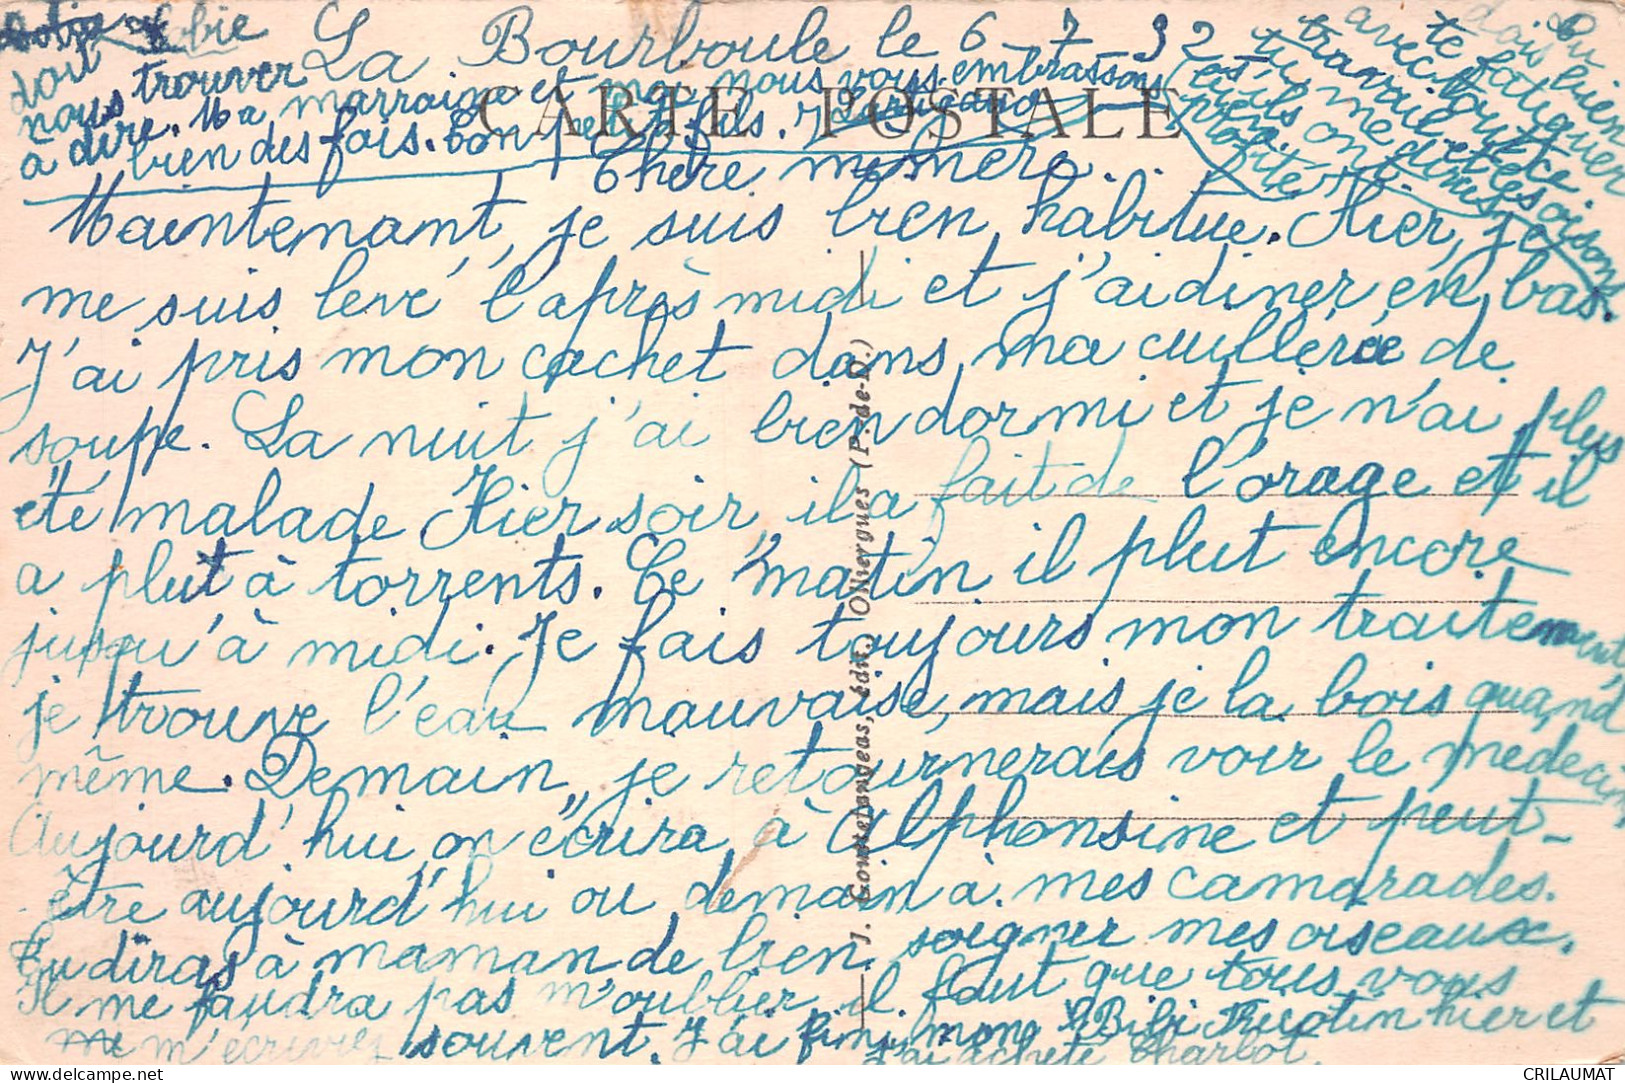 La Bourboule le 6 7 32
CARTE POSTALE
Chère mémère.
Maintenant, je suis bien habitue. Hier, je
me suis levé l'après midi et j'ai diner en bas.
J'ai pris mon cachet dans ma cuillerée de
soupe. La nuit j'ai bien dormi et je n'ai plus
été malade Hier soir, il a fait de l'orage et il
a plut à torrents. Ce matin il plut encore
jusqu'à midi. Je fais toujours mon traitement,
je trouve l'eau mauvaise, mais je la bois quand
même. Demain, je retournerais voir le medecin,
Aujourd'hui, on écrira à Alphonsine et peut-
être aujourd'hui ou demain à mes camarades.
Tu diras à maman de bien soigner mes oiseaux.
Il me faudra pas m'oublier il faut que tous vous
me m'écrivez souvent. J'ai fini mon Bibi Fricotin hier et
j'ai acheté Charlot.
doit
nous trouver
à dire. Ma marraine et moi nous vous embrassons
bien des fois. Ton petit fils.
Tu dois bien
te fatiguer
avec tout ce
travail et
tu me diras
s'ils ont
profité
J. Gouttefangeas, édit., Olliergues (P.-de-D.)
CRILAUMAT